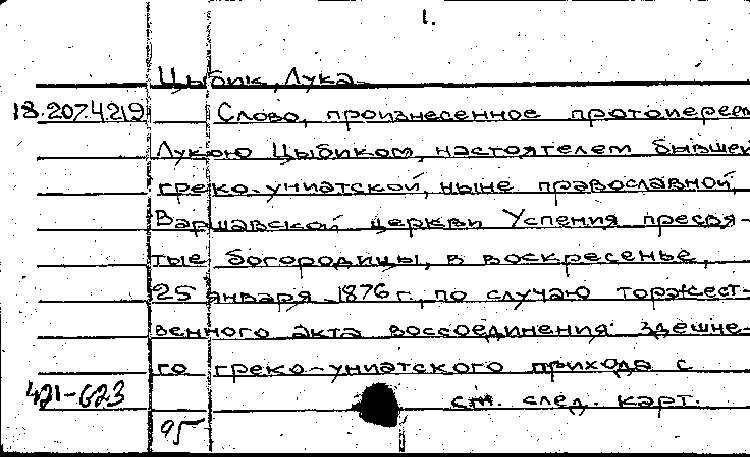 1.
Цыбик, Лука
18.207.4.219 Слово, произнесенное протоиереем
Лукою Цыбиком, настоятелем бывшей
греко-униатской, ныне православной,
Варшавской церкви Успения пресвя-
тые богородицы, в воскресенье,
25 января 1876 г., по случаю торжест-
венного акта воссоединения здешне-
го греко-униатского прихода с
421-623 см. след. карт.
95